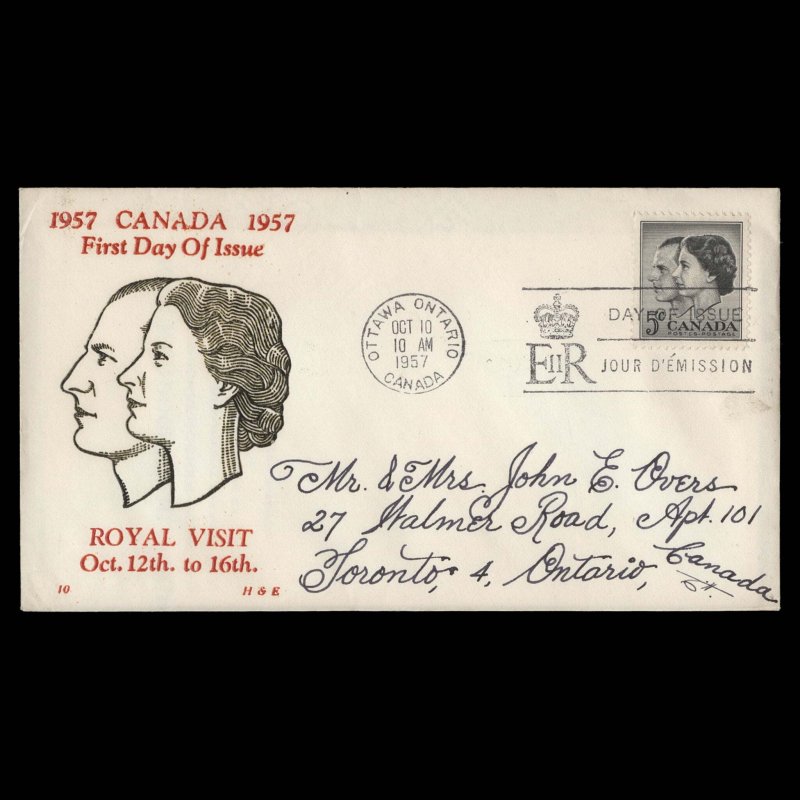 1957 CANADA 1957
First Day Of Issue
OTTAWA ONTARIO
OCT 10
10 AM
1957
CANADA
DAY OF ISSUE
5¢ CANADA
POSTES-POSTAGE
EIIR JOUR D'ÉMISSION
Mr. & Mrs. John E. Overs
27 Walmer Road, Apt. 101
Toronto, 4, Ontario, Canada
ROYAL VISIT
Oct. 12th. to 16th.
10 H & E